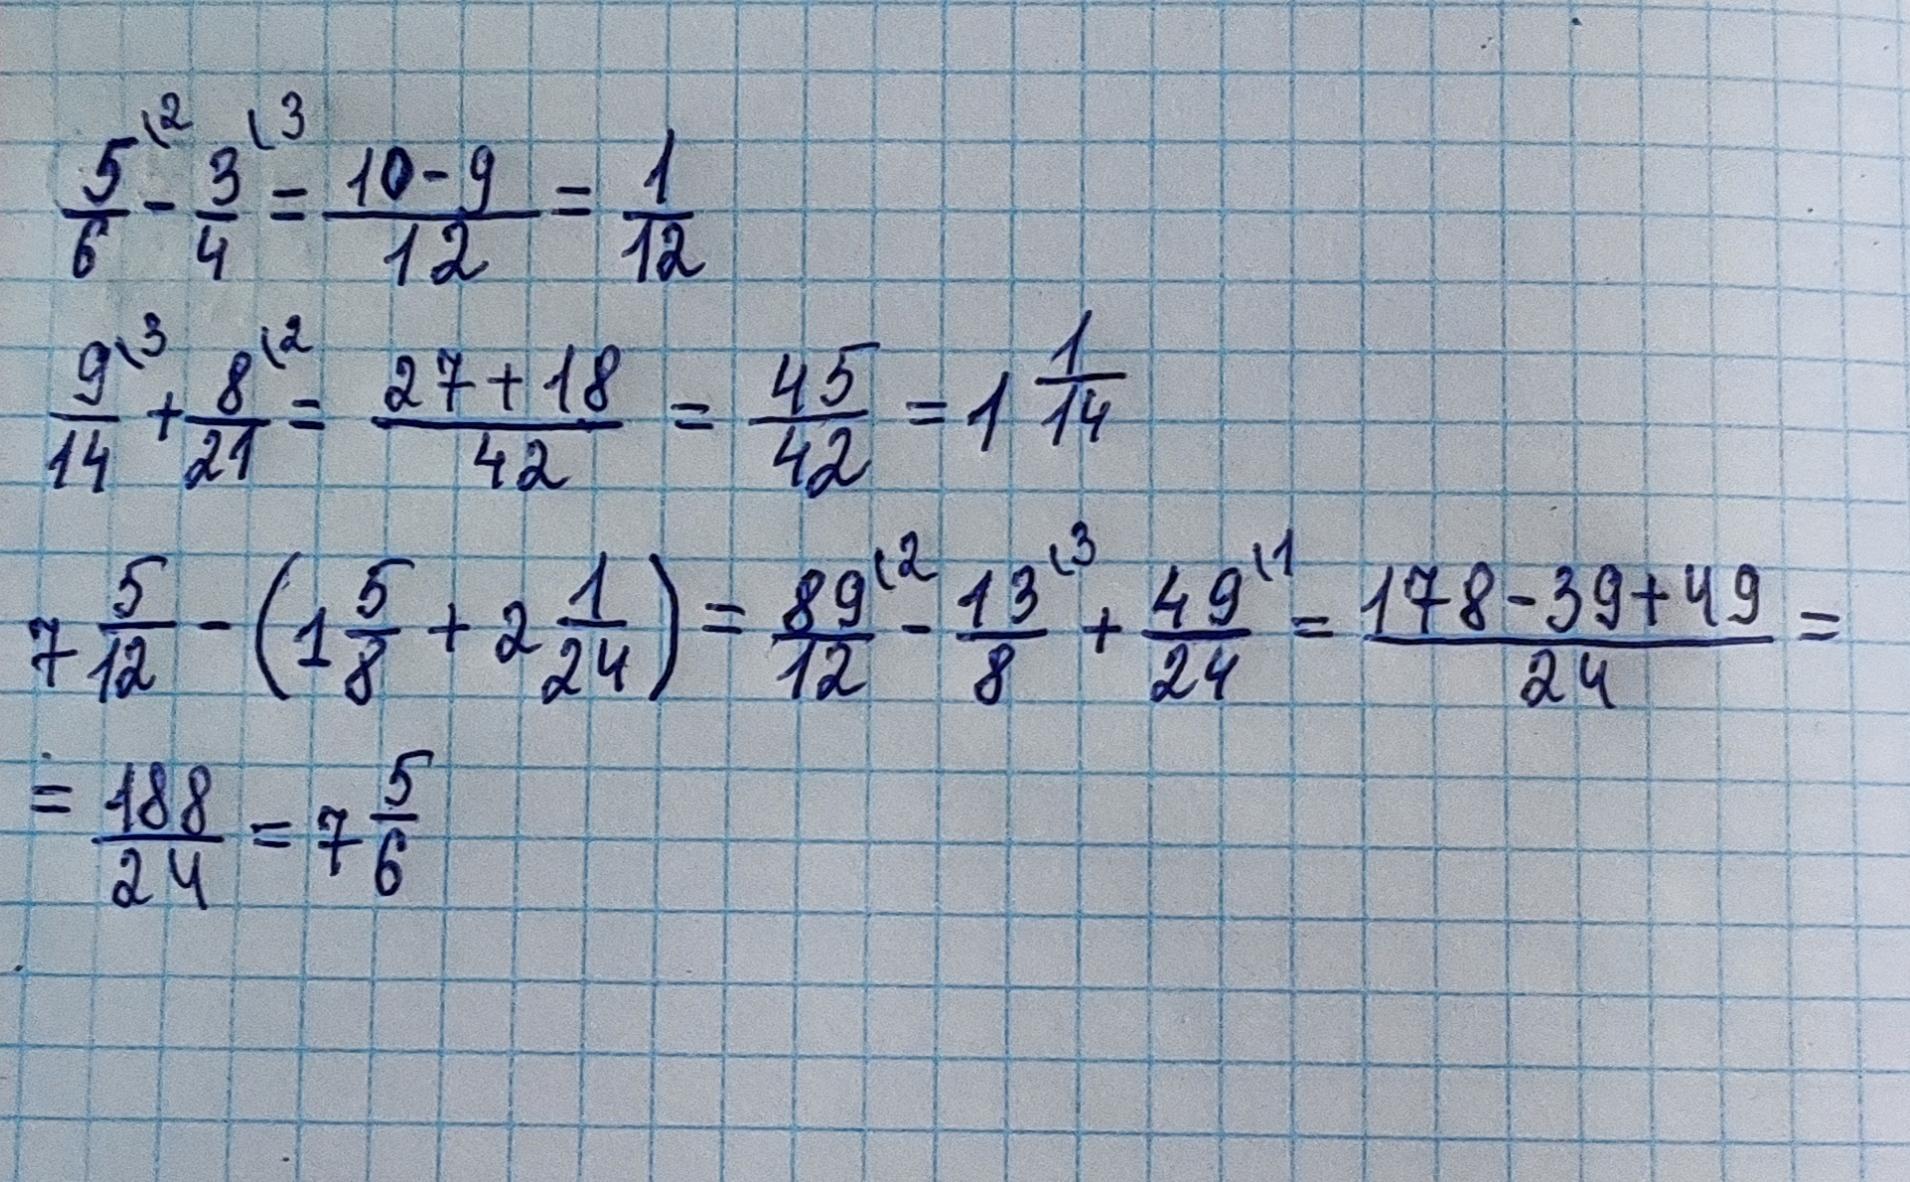 5/6 \2 - 3/4 \3 = (10-9)/12 = 1/12
9/14 \3 + 8/21 \2 = (27+18)/42 = 45/42 = 1 1/14
7 5/12 - (1 5/8 + 2 1/24) = 89/12 \2 - 13/8 \3 + 49/24 \1 = (178-39+49)/24 =
= 188/24 = 7 5/6